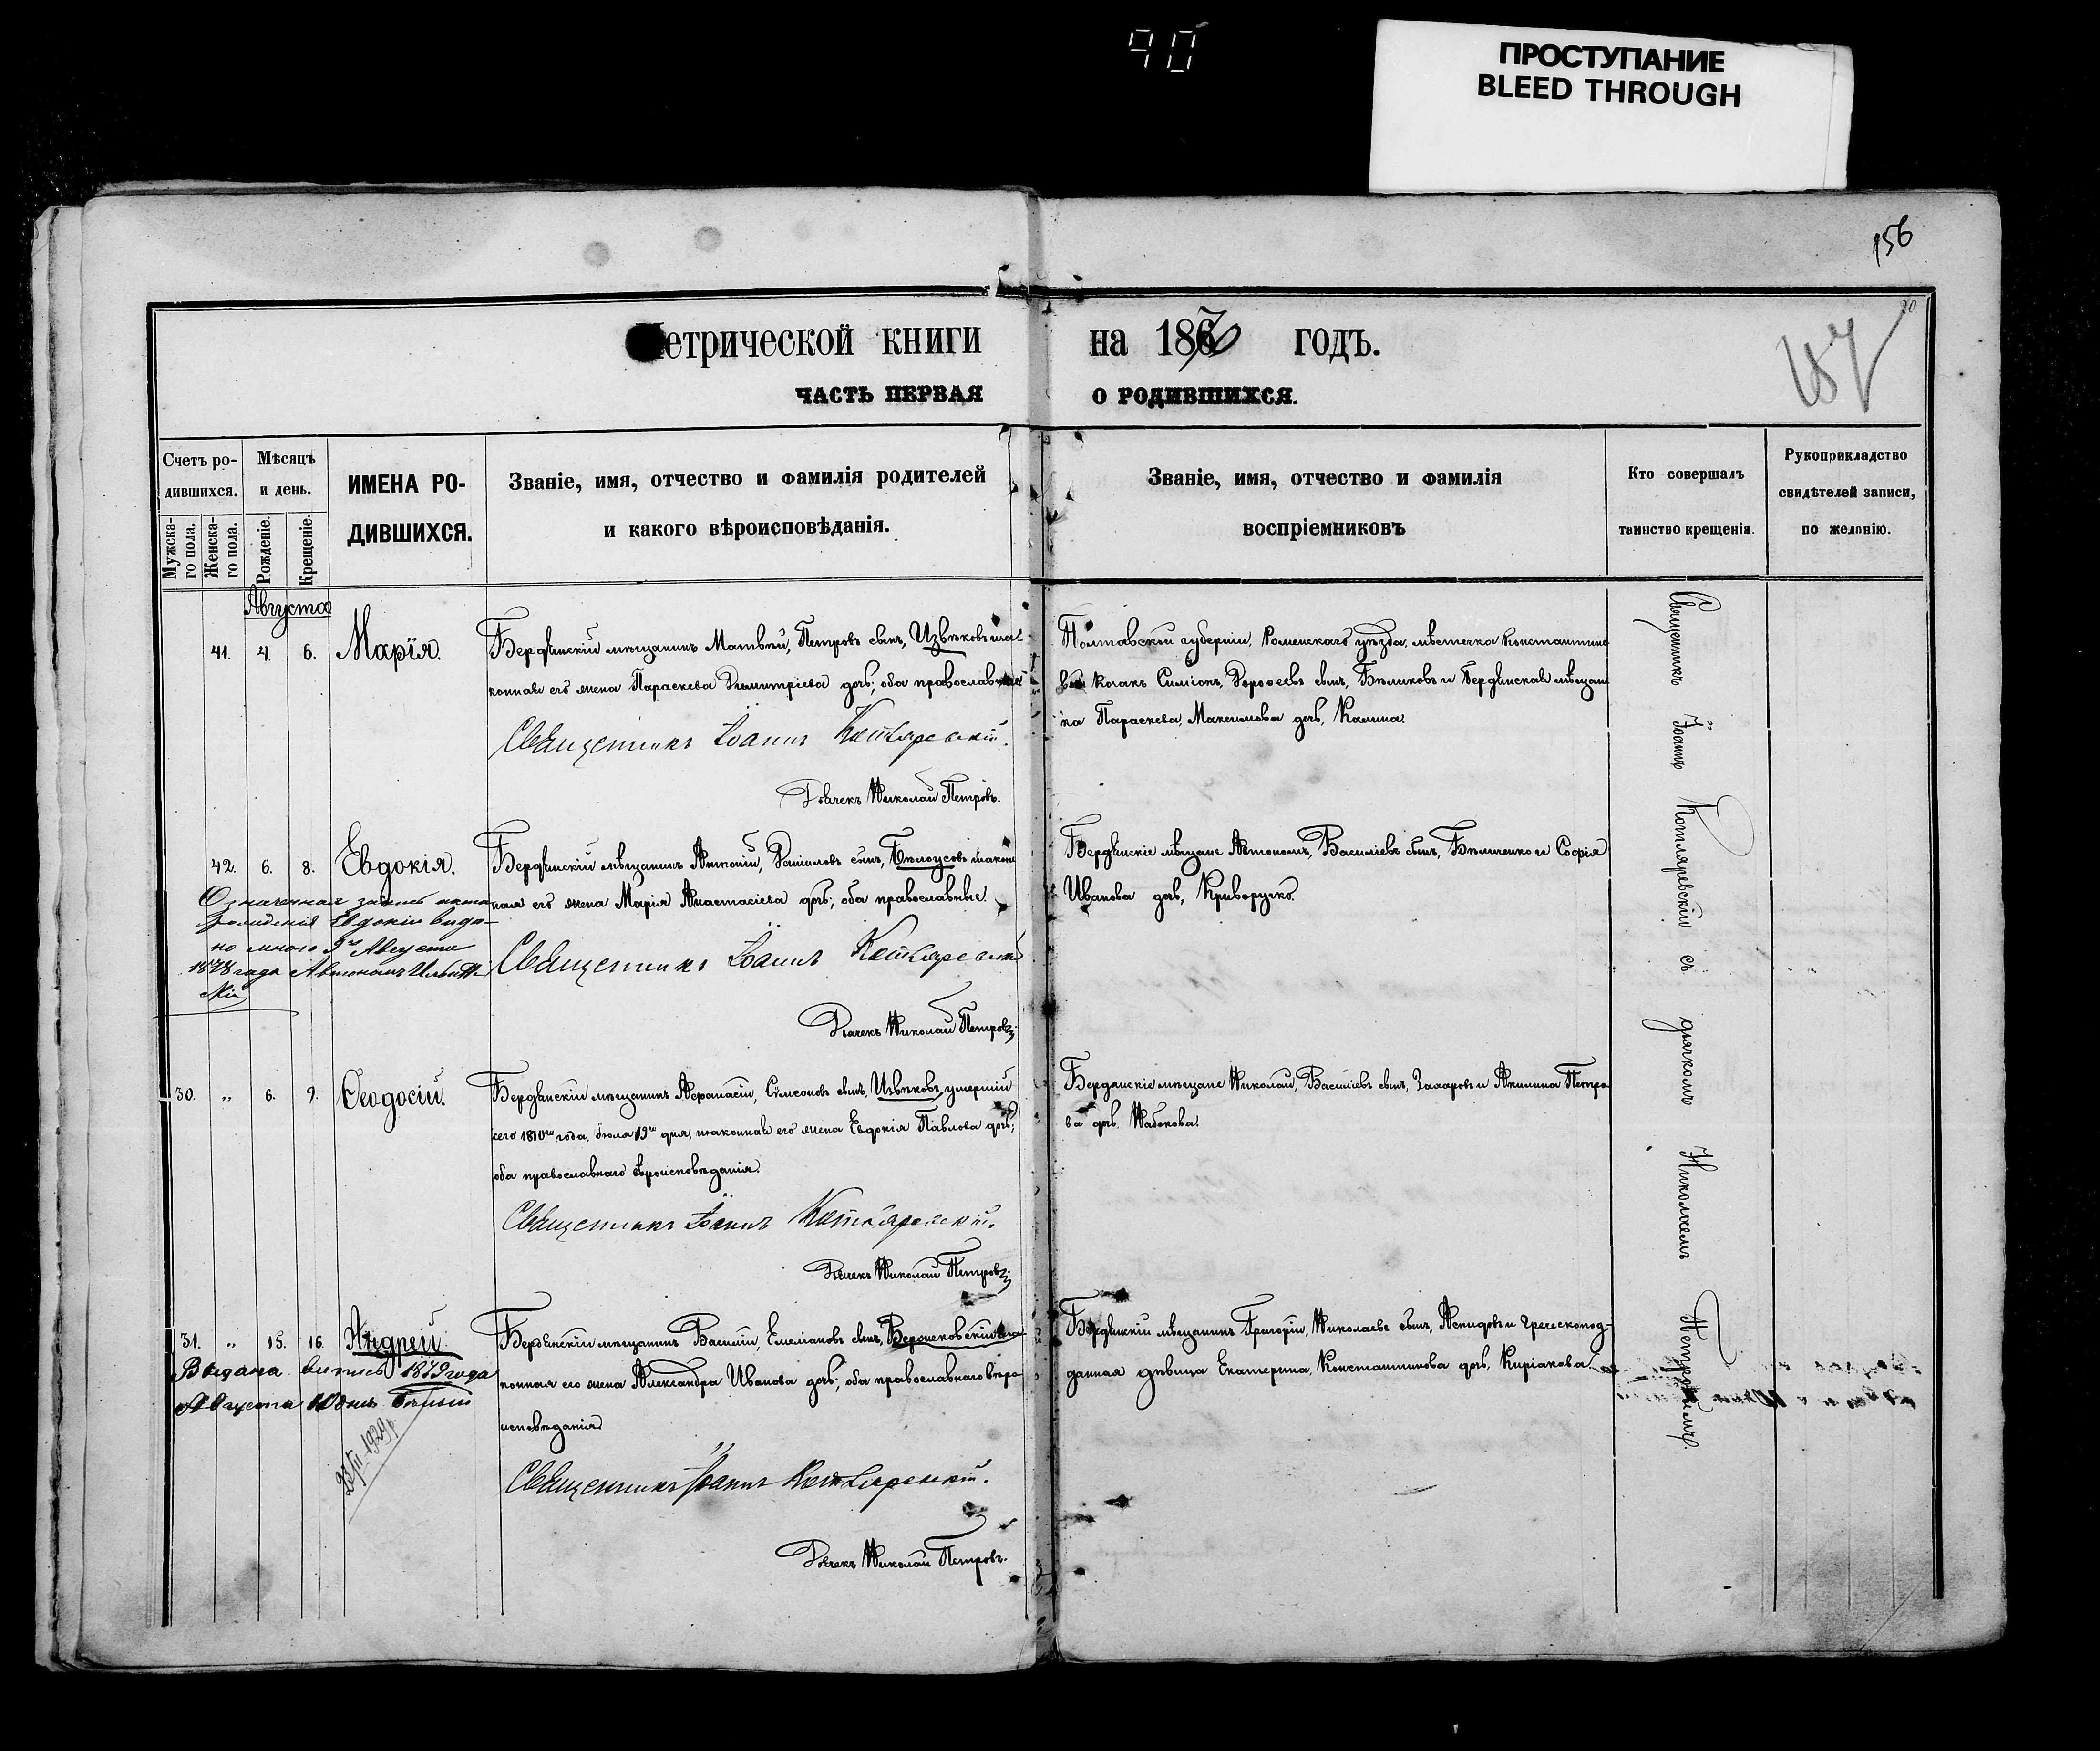 90
ПРОСТУПАНИЕ
BLEED THROUGH
156
90
157
етрической книги на 1870 годъ.
ЧАСТЬ ПЕРВАЯ О РОДИВШИХСЯ.
Счетъ ро-
дившихся.
Мужска-
го пола.
Женска-
го пола.
Мѣсяцъ
и день.
Рожденіе.
Крещеніе.
ИМЕНА РО-
ДИВШИХСЯ.
Званіе, имя, отчество и фамилія родителей
и какого вѣроисповѣданія.
Званіе, имя, отчество и фамилія
воспріемниковъ
Кто совершалъ
таинство крещенія.
Рукоприкладство
свидѣтелей записи,
по желанію.
Августа
41. 4. 6. Марія.
Бердянскій мѣщанинъ Матвѣй, Петровъ сынъ, Извѣковъ и за-
конная его жена Параскева Димитріева дочь; оба православные
Священникъ Іоаннъ Котляревскій.
Дьячекъ Николай Петровъ.
Полтавской губерніи, Роменскаго уѣзда, мѣстечка Константино
вки козакъ Симіонъ, Дорофеевъ сынъ, Бѣликовъ и Бердянская мѣщан
ка Параскева, Максимова дочь, Калина.
42. 6. 8. Евдокія.
Бердянскій мѣщанинъ Антоній, Даніиловъ сынъ, Бѣлоусовъ и закон
ная его жена Марія Анастасіева дочь; оба православные.
Священникъ Іоаннъ Котляревскій
Дьячекъ Николай Петровъ.
Бердянскіе мѣщане Автономъ, Василіевъ сынъ, Бѣличенко и Софія
Иванова дочь, Криворучко.
Означенная запись акта
рожденія Евдокіи выда-
но мною 9го Августа
1878 года
30. „ 6. 9. Ѳеодосій.
Бердянскій мѣщанинъ Афанасій, Сѵмеоновъ сынъ, Извѣковъ, умершій
сего 1870го года, Іюля 19го дня, и законная его жена Евдокія Павлова дочь;
оба православнаго вѣроисповѣданія.
Священникъ Іоаннъ Котляревскій.
Дьячекъ Николай Петровъ.
Бердянскіе мѣщане Николай, Василіевъ сынъ, Захаровъ и Акилина Петро-
ва дочь, Набокова.
31. „ 15. 16. Андрей.
Бердянскій мѣщанинъ Василій, Емеліановъ сынъ, и за
конная его жена Александра Иванова дочь; оба православнаго вѣро-
исповѣданія.
Священникъ Іоаннъ Котляревскій.
Дьячекъ Николай Петровъ.
Бердянскій мѣщанинъ Григорій, Николаевъ сынъ, и Греческопод-
данная дѣвица Екатерина, Константинова дочь, Киріакова.
Выдана выпись 1879 года
Августа 10 дня
Священникъ Іоаннъ Котляревскій съ дьячкомъ Николаемъ Петровымъ.